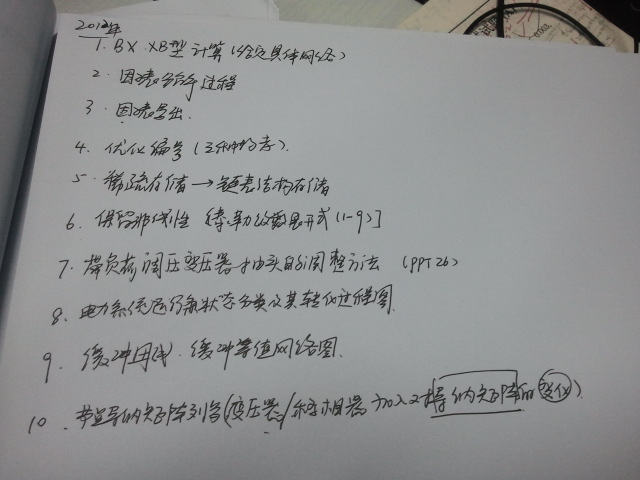 2012年
1. BX. XB型 计算(给定具体网络)
2. 因子表分解过程
3. 因子表
4. 优化编号(三种方法).
5. 稀疏存储→链表结构存储
6. 保留非线性 (1-9)]
7. 带负荷调压变压器抽头的调整方法 (PPT26)
8. 电力系统运行状态分类及其转化过程图.
9. 缓冲 缓冲等值网络图.
10. 导纳矩阵列写(变压器/移相器加入对导纳矩阵的变化)